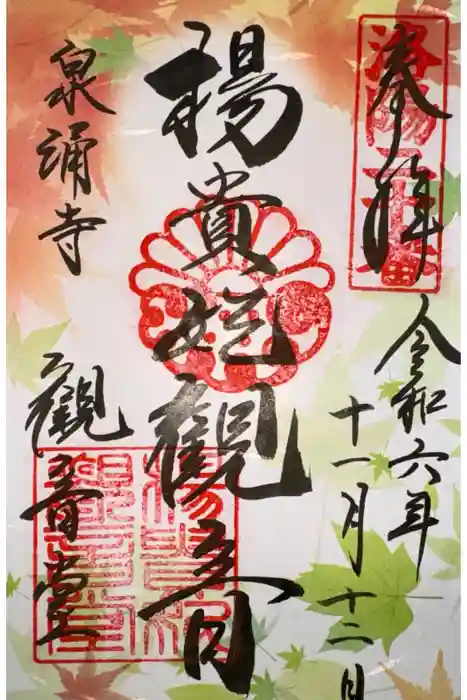 奉拝
洛陽二十番
令和六年
十一月十二日
楊貴妃観音
泉涌寺
観音堂